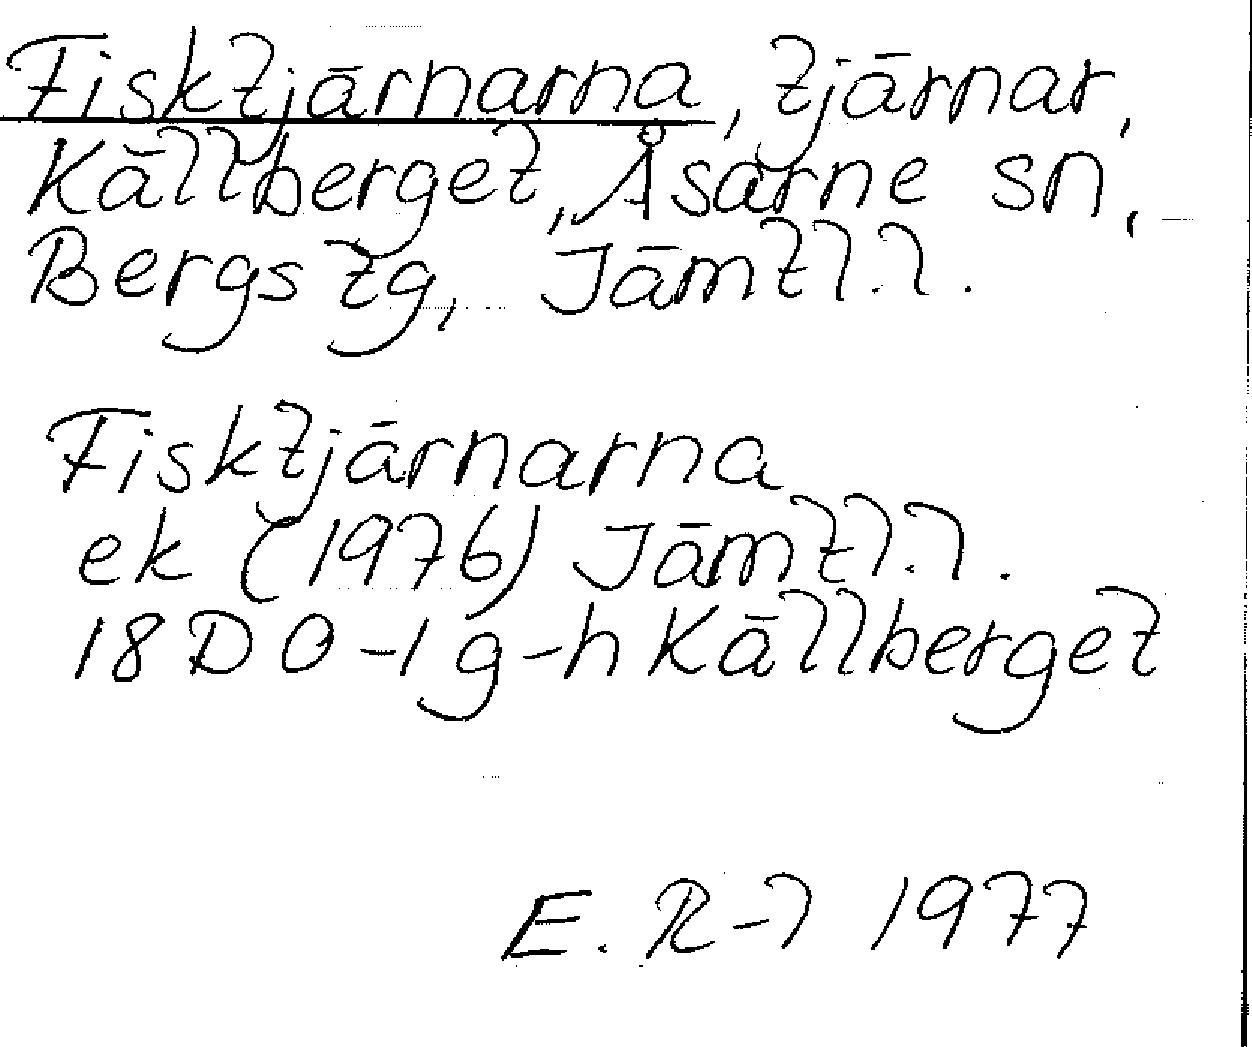 Fisktjärnarna, tjärnar,
Källberget, Åsarne sn,
Bergs tg, Jämtl.l.
Fisktjärnarna
ek (1976) Jämtl.l.
18D 0-1 g-h Källberget
E. R-l 1977